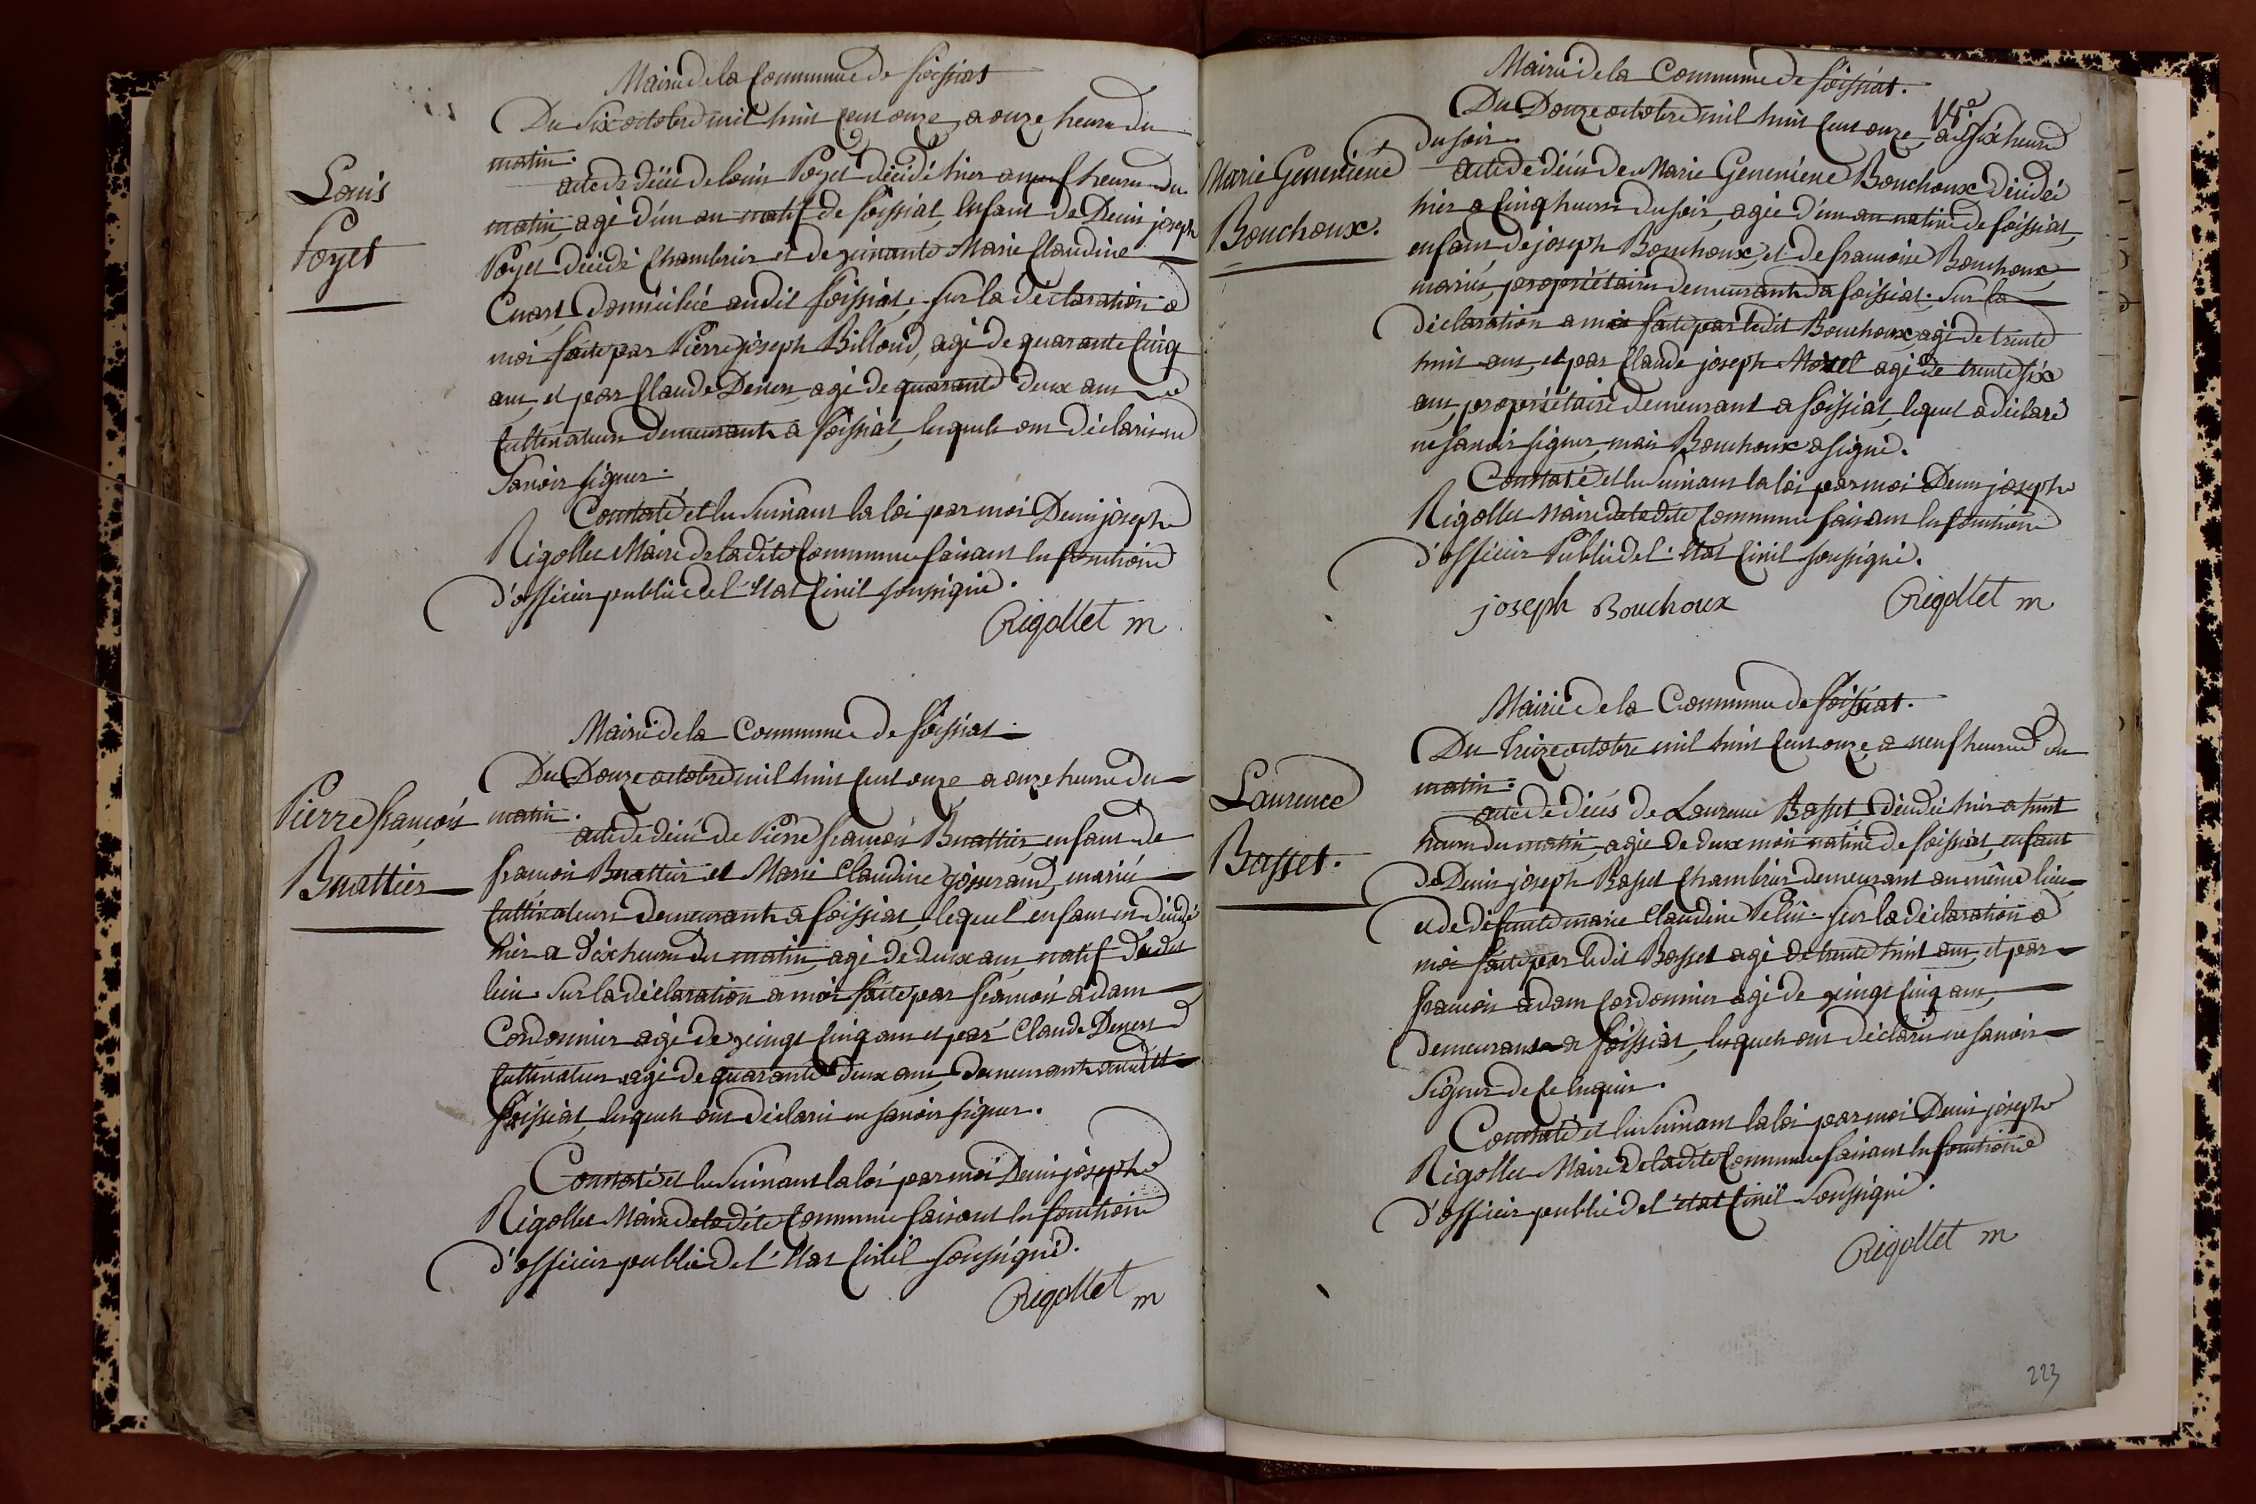 Mairie de la Commune de foissiat
Du Six octobre mil huit Cent onze, a onze heure du
matin.
Louis
Poyet
acte de décès de louis Poyet décédé hier a neuf heures du
matin, agé d'un an natif de foissiat, Enfant de Denis joseph
Poyet décédé Chambrier et de vivante Marie Claudine
Cuart Domiciliée audit foissiat, sur la déclaration a
moi faite par Pierre joseph Billoud, agé de quarante Cinq
ans, et par Claude Deners agé de quarante deux ans
Cultivateurs demeurants a foissiat, lesquels ont déclarés ne
Savoir signer.
Constaté et lu Suivant la loi par moi Denis joseph
Rigollet Maire de la dite Commune faisant les fonctions
d'officier public de l'Etat Civil soussigné.
Rigollet m
Mairie de la Commune de foissiat
Du Douze octobre mil huit Cent onze a onze heures du
matin.
Pierre françois
Buattier
acte de décès de Pierre françois Buattier, enfant de
françois Buattier et Marie Claudine josserand, mariés
Cultivateurs demeurants a foissiat, lequel enfant en décédé
hier a dix heures du matin, agé de deux ans, natif dudit
lieu. Sur la déclaration a moi faite par françois adam
Cordonnier agé de vingt Cinq ans et par Claude Deners
Cultivateur agé de quarante deux ans, Demeurants audit
foissiat, lesquels ont déclaré ne savoir signer.
Constaté et lu Suivant la loi par moi Denis joseph
Rigollet Maire de la dite Commune faisant les fonctions
d'officier public de l'Etat Civil Soussigné.
Rigollet m
Mairie de la Commune de foissiat.
Du Douze octobre mil huit Cent onze a six heures
du soir.
Marie Genevieve
Bouchoux.
acte de décès de Marie Genevieve Bouchoux décédée
hier a Cinq heures du soir, agée d'un an native de foissiat,
enfant de joseph Bouchoux, et de francoise Bouchoux
mariés, propriétaires demeurants a foissiat. Sur la
déclaration a moi faite par ledit Bouchoux, agé de trente
huit ans, et par Claude joseph Morel agé de trente six
ans, propriétaire demeurant a foissiat, lequel a déclaré
ne savoir signer, mais Bouchoux a signé.
Constaté et lu Suivant la loi par moi Denis joseph
Rigollet Maire de la dite Commune faisant les fonctions
d'officier Public de l'Etat Civil soussigné.
joseph Bouchoux Rigollet m
Mairie de la Commune de foissiat.
Du Treize octobre mil huit Cent onze a neuf heures du
matin.
Laurence
Basset.
acte de décès de Laurence Basset, décédée hier a huit
heures du matin, agée de deux mois native de foissiat, enfant
de Denis joseph Basset Chambrier demeurant au même lieu
et de défunte marie Claudine Velin. sur la déclaration a
moi faite par ledit Basset agé de trente huit ans, et par
françois adam Cordonnier agé de vingt Cinq ans,
demeurants a foissiat, lesquels ont déclarés ne savoir
Signer de Ce enquis.
Constaté et lu Suivant la loi par moi Denis joseph
Rigollet Maire de la dite Commune faisant les fonctions
d'officier public de l'état Civil Soussigné.
Rigollet m
223